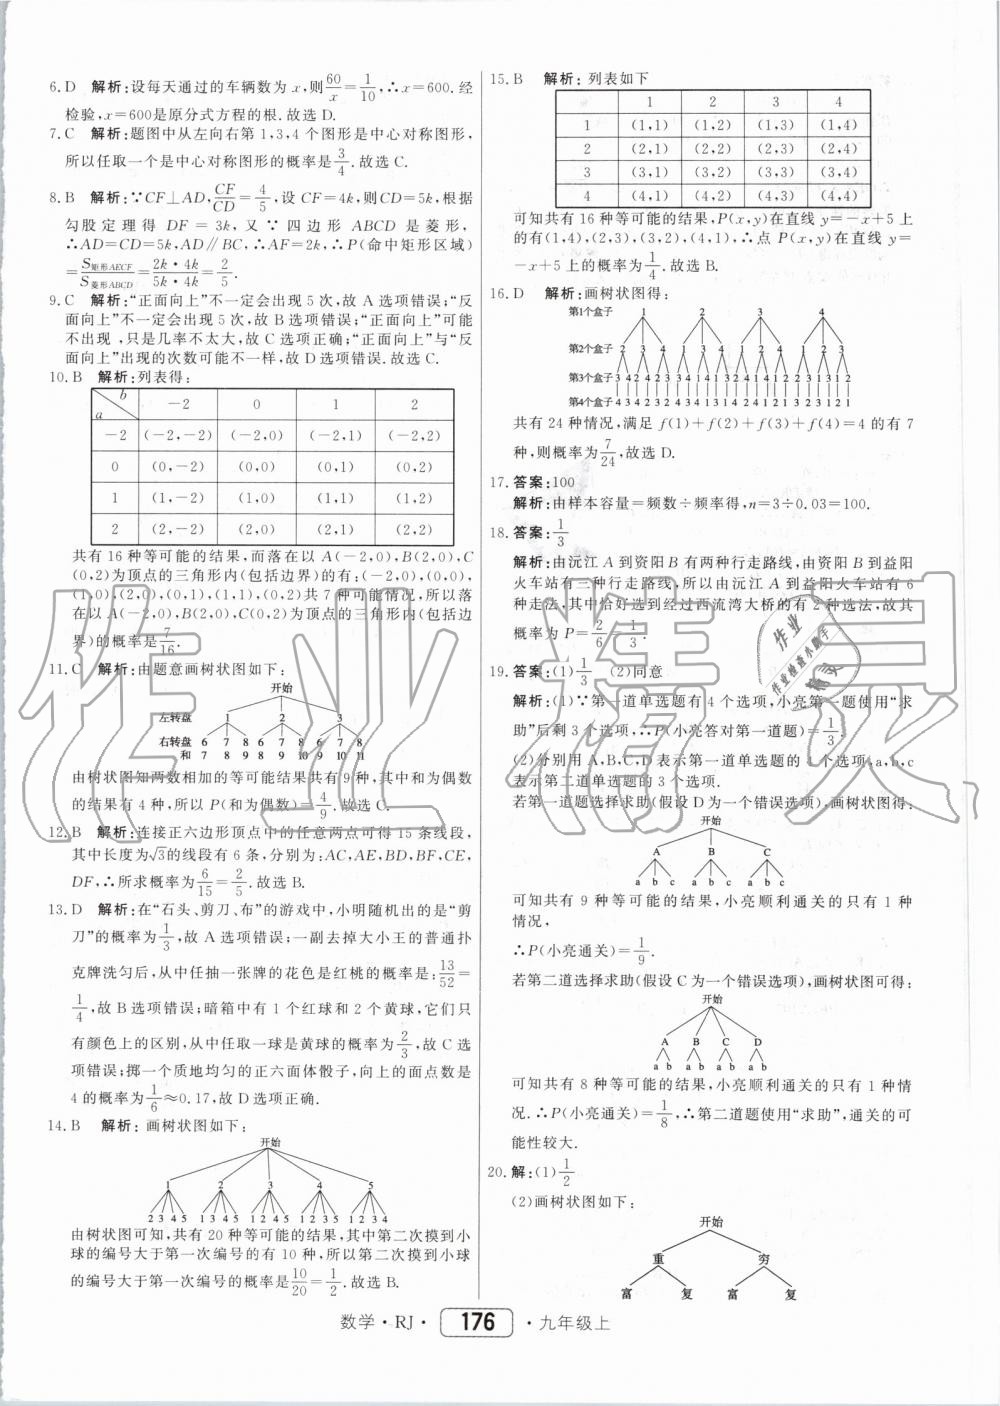 6. D 解析:设每天通过的车辆数为 x,则60/x=1/10,∴x=600.经
检验,x=600是原分式方程的根.故选 D.
7. C 解析:题图中从左向右第 1,3,4 个图形是中心对称图形,
所以任取一个是中心对称图形的概率是3/4.故选 C.
8. B 解析:∵CF⊥AD,CF/CD=4/5,设 CF=4k,则CD=5k,根据
勾股定理得 DF=3k,又∵四边形 ABCD 是菱形,
∴AD=CD=5k,AD∥BC,∴AF=2k,∴P(命中矩形区域)
=S矩形AECF/S菱形ABCD=2k·4k/5k·4k=2/5.
9. C 解析:“正面向上”不一定会出现 5 次,故 A 选项错误;“反
面向上”不一定会出现 5 次,故 B 选项错误;“正面向上”可能
不出现,只是几率不太大,故 C 选项正确;“正面向上”与“反
面向上”出现的次数可能不一样,故 D 选项错误.故选 C.
10. B 解析:列表得:
a b -2 0 1 2
-2 (-2,-2) (-2,0) (-2,1) (-2,2)
0 (0,-2) (0,0) (0,1) (0,2)
1 (1,-2) (1,0) (1,1) (1,2)
2 (2,-2) (2,0) (2,1) (2,2)
共有 16 种等可能的结果,而落在以 A(-2,0),B(2,0),C
(0,2)为顶点的三角形内(包括边界)的有:(-2,0),(0,0),
(1,0),(2,0),(0,1),(1,1),(0,2)共 7 种可能情况,所以落
在以 A(-2,0),B(2,0),C(0,2)为顶点的三角形内(包括边
界)的概率是7/16.
11. C 解析:由题意画树状图如下:
开始
左转盘 1 2 3
右转盘 6 7 8 6 7 8 6 7 8
和 7 8 9 8 9 10 9 10 11
由树状图知两数相加的等可能结果共有 9 种,其中和为偶数
的结果有 4 种,所以 P(和为偶数)=4/9.故选 C.
12. B 解析:连接正六边形顶点中的任意两点可得 15 条线段,
其中长度为√3的线段有 6 条,分别为:AC,AE,BD,BF,CE,
DF,∴所求概率为6/15=2/5.故选 B.
13. D 解析:在“石头、剪刀、布”的游戏中,小明随机出的是“剪
刀”的概率为1/3,故 A 选项错误;一副去掉大小王的普通扑
克牌洗匀后,从中任抽一张牌的花色是红桃的概率是:13/52=
1/4,故 B 选项错误;暗箱中有 1 个红球和 2 个黄球,它们只
有颜色上的区别,从中任取一球是黄球的概率为2/3,故 C 选
项错误;掷一个质地均匀的正六面体骰子,向上的面点数是
4 的概率为1/6≈0.17,故 D 选项正确.
14. B 解析:画树状图如下:
开始
1 2 3 4 5
2 3 4 5 1 3 4 5 1 2 4 5 1 2 3 5 1 2 3 4
由树状图可知,共有 20 种等可能的结果,其中第二次摸到小
球的编号大于第一次编号的有 10 种,所以第二次摸到小球
的编号大于第一次编号的概率是10/20=1/2.故选 B.
15. B 解析:列表如下
1 2 3 4
1 (1,1) (1,2) (1,3) (1,4)
2 (2,1) (2,2) (2,3) (2,4)
3 (3,1) (3,2) (3,3) (3,4)
4 (4,1) (4,2) (4,3) (4,4)
可知共有 16 种等可能的结果,P(x,y)在直线 y=-x+5 上
的有(1,4),(2,3),(3,2),(4,1),∴点 P(x,y)在直线 y=
-x+5上的概率为1/4.故选 B.
16. D 解析:画树状图得:
第1个盒子 1 2 3 4
第2个盒子 2 3 4 1 3 4 1 2 4 1 2 3
第3个盒子 3 4 2 4 2 3 3 4 1 4 1 3 2 4 1 4 1 2 2 3 1 3 1 2
第4个盒子 4 3 4 2 3 2 4 3 4 1 3 1 4 2 4 1 2 1 3 2 3 1 2 1
共有 24 种情况,满足 f(1)+f(2)+f(3)+f(4)=4 的有 7
种,则概率为7/24,故选 D.
17. 答案:100
解析:由样本容量=频数÷频率得,n=3÷0.03=100.
18. 答案:1/3
解析:由沅江 A 到资阳 B 有两种行走路线,由资阳 B 到益阳
火车站有三种行走路线,所以由沅江 A 到益阳火车站有 6
种走法,其中恰好选到经过西流湾大桥的有 2 种选法,故其
概率为 P=2/6=1/3.
19. 答案:(1)1/3 (2)同意
解析:(1)∵第一道单选题有 4 个选项,小亮第一题使用“求
助”后剩 3 个选项,∴P(小亮答对第一道题)=1/3.
(2)分别用 A,B,C,D 表示第一道单选题的 4 个选项,a,b,c
表示第二道单选题的 3 个选项.
若第一道题选择求助(假设 D 为一个错误选项),画树状图得:
开始
A B C
a b c a b c a b c
可知共有 9 种等可能的结果,小亮顺利通关的只有 1 种
情况,
∴P(小亮通关)=1/9.
若第二道选择求助(假设 C 为一个错误选项),画树状图可得:
开始
A B C D
a b a b a b a b
可知共有 8 种等可能的结果,小亮顺利通关的只有 1 种情
况.∴P(小亮通关)=1/8,∴第二道题使用“求助”,通关的可
能性较大.
20. 解:(1)1/2
(2)画树状图如下:
开始
重 穷
富 复 富 复
数学·RJ· 176 ·九年级上
作业精灵
作业
作业检查小助手
精灵